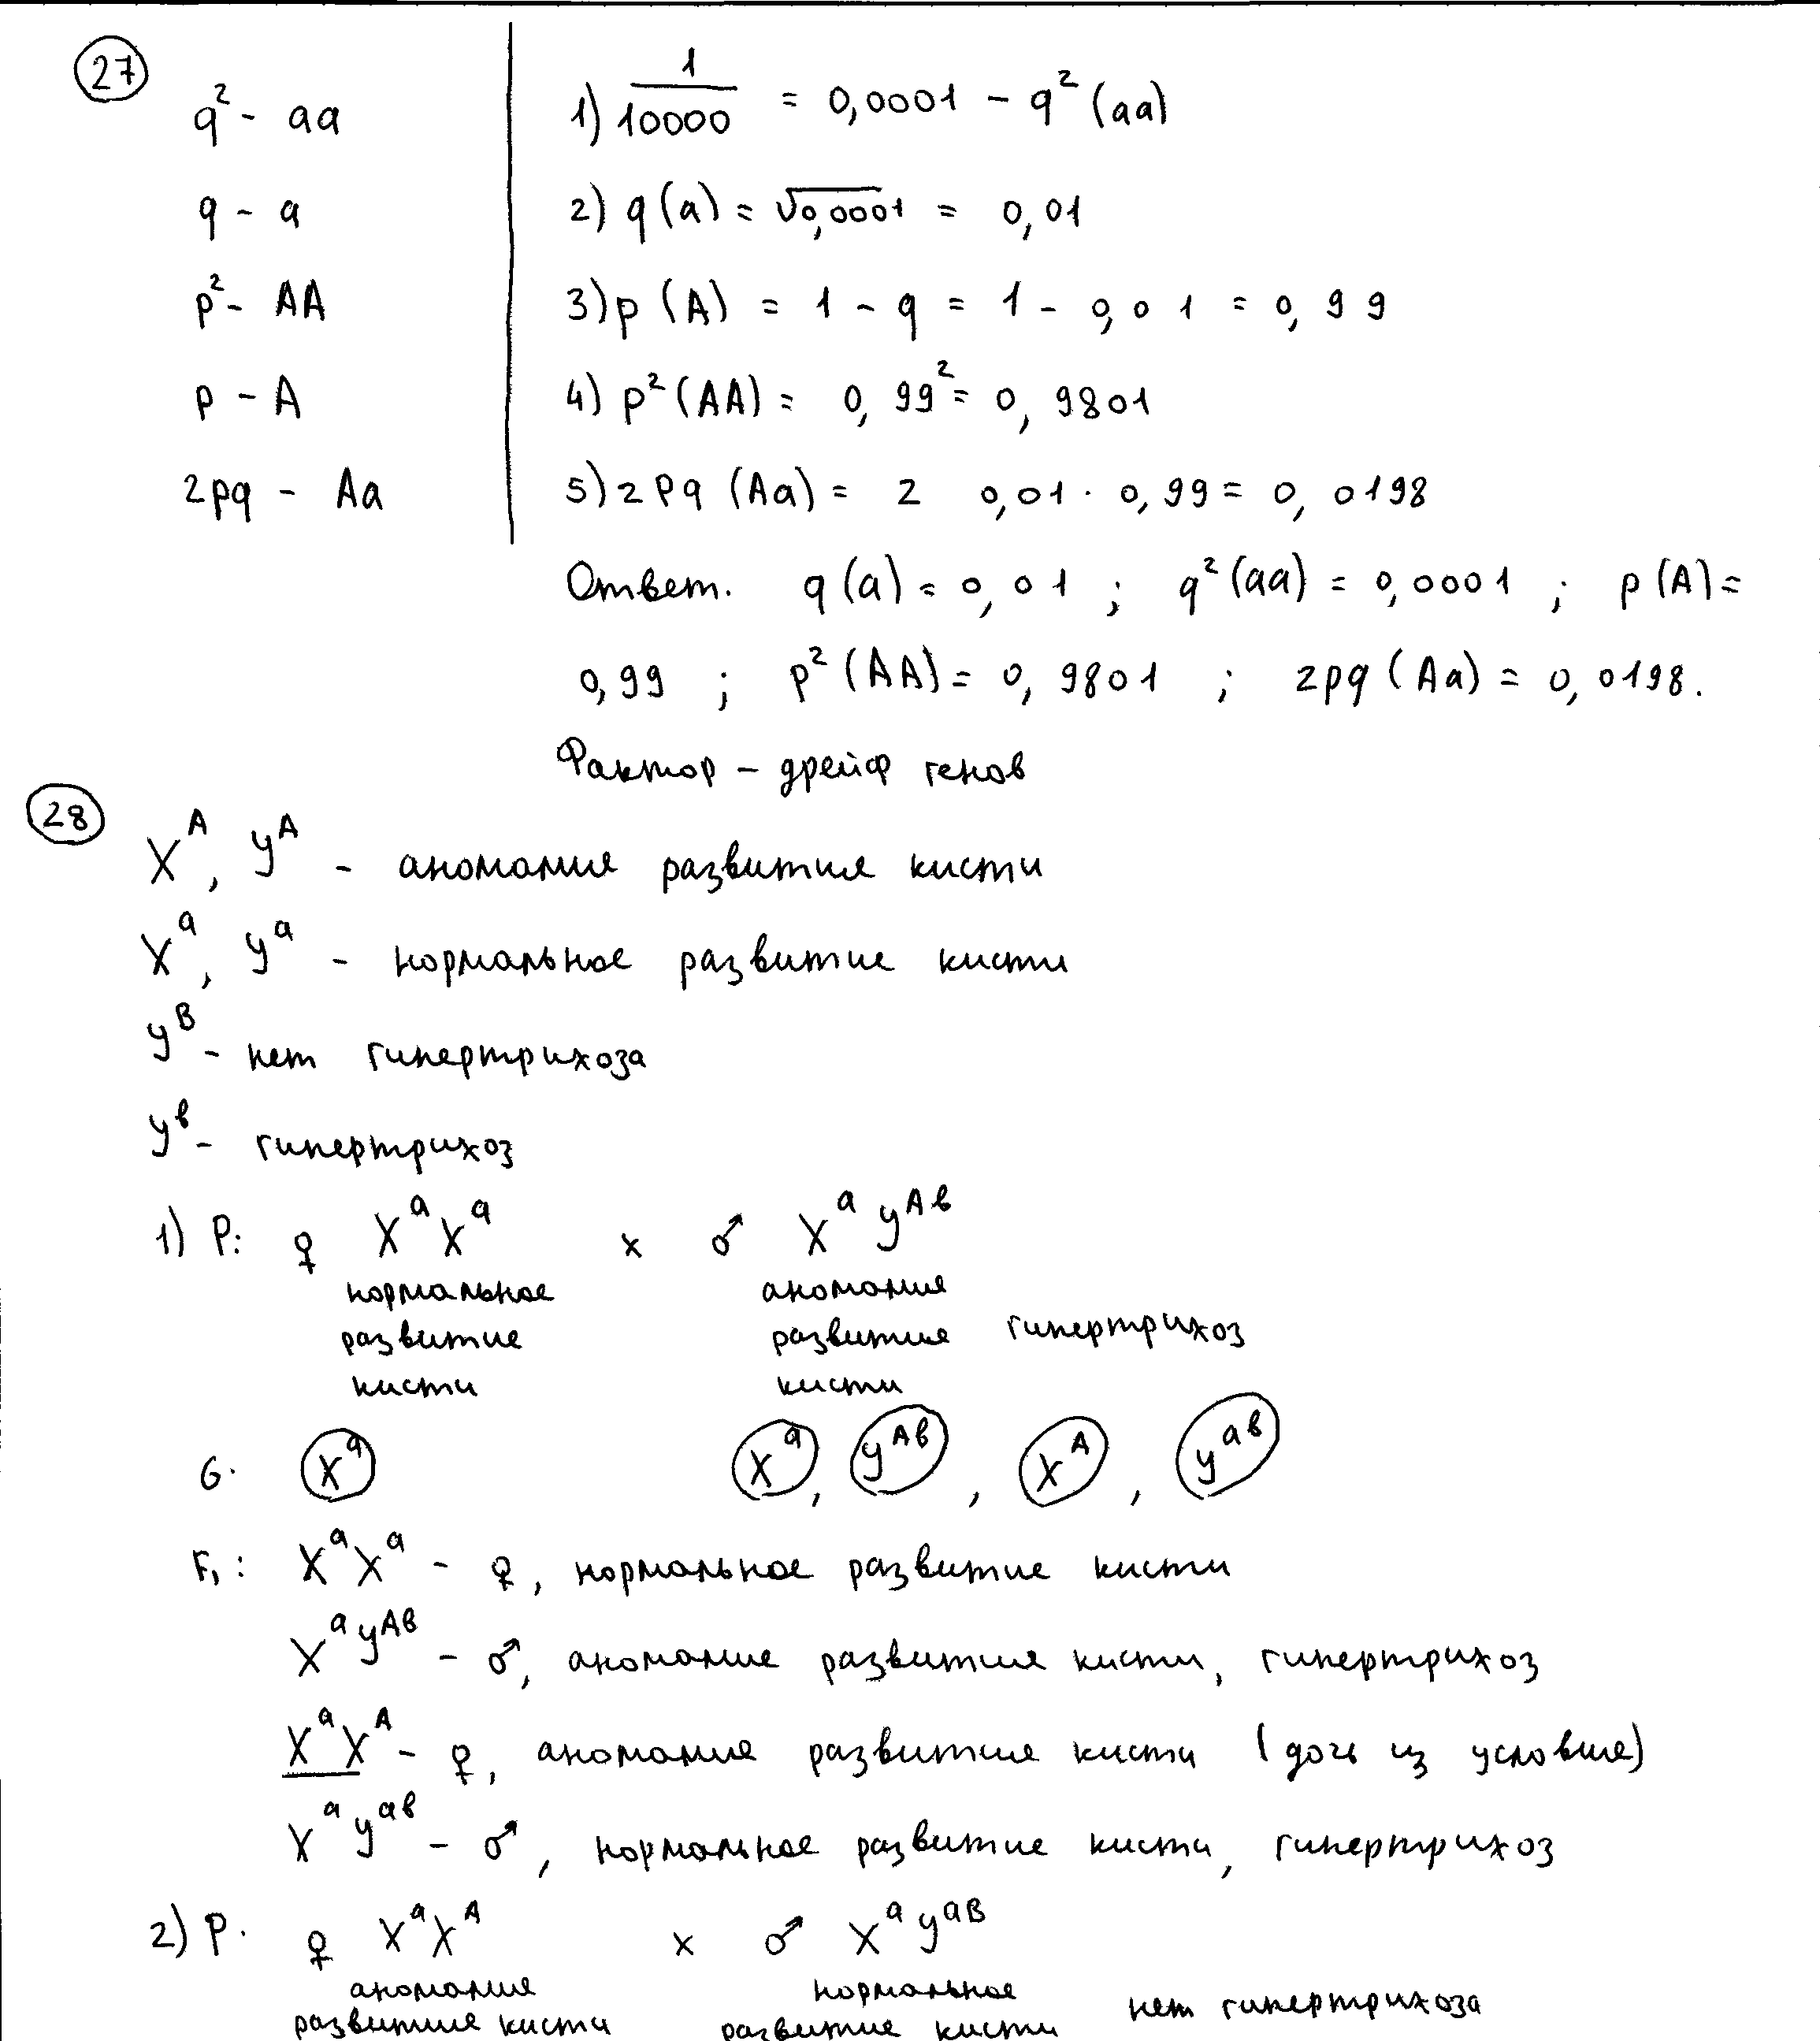 27
q² - aa
1) 1/10000 = 0,0001 - q² (aa)
q - a
2) q (a) = √0,0001 = 0,01
p² - AA
3) p (A) = 1 - q = 1 - 0,01 = 0,99
p - A
4) p² (AA) = 0,99² = 0,9801
2pq - Aa
5) 2pq (Aa) = 2 0,01 · 0,99 = 0,0198
Ответ. q (a) = 0,01 ; q² (aa) = 0,0001 ; p (A) =
0,99 ; p² (AA) = 0,9801 ; 2pq (Aa) = 0,0198.
Фактор - дрейф генов
28
Xᴬ, yᴬ - аномалия развития кисти
Xᵃ, yᵃ - нормальное развитие кисти
yᴮ - нет гипертрихоза
yᵇ - гипертрихоз
1) P: ♀ XᵃXᵃ x ♂ Xᵃyᴬᵇ
нормальное аномалия
развитие развития гипертрихоз
кисти кисти
G. Xᵃ Xᵃ, yᴬᵇ, Xᴬ, yᵃᵇ
F₁: XᵃXᵃ - ♀, нормальное развитие кисти
Xᵃyᴬᵇ - ♂, аномалие развития кисти, гипертрихоз
XᵃXᴬ - ♀, аномалие развития кисти (дочь из условия)
Xᵃyᵃᵇ - ♂, нормальное развитие кисти, гипертрихоз
2) P. ♀ XᵃXᴬ x ♂ Xᵃyᵃᴮ
аномалия нормальное
развития кисти развитие кисти нет гипертрихоза